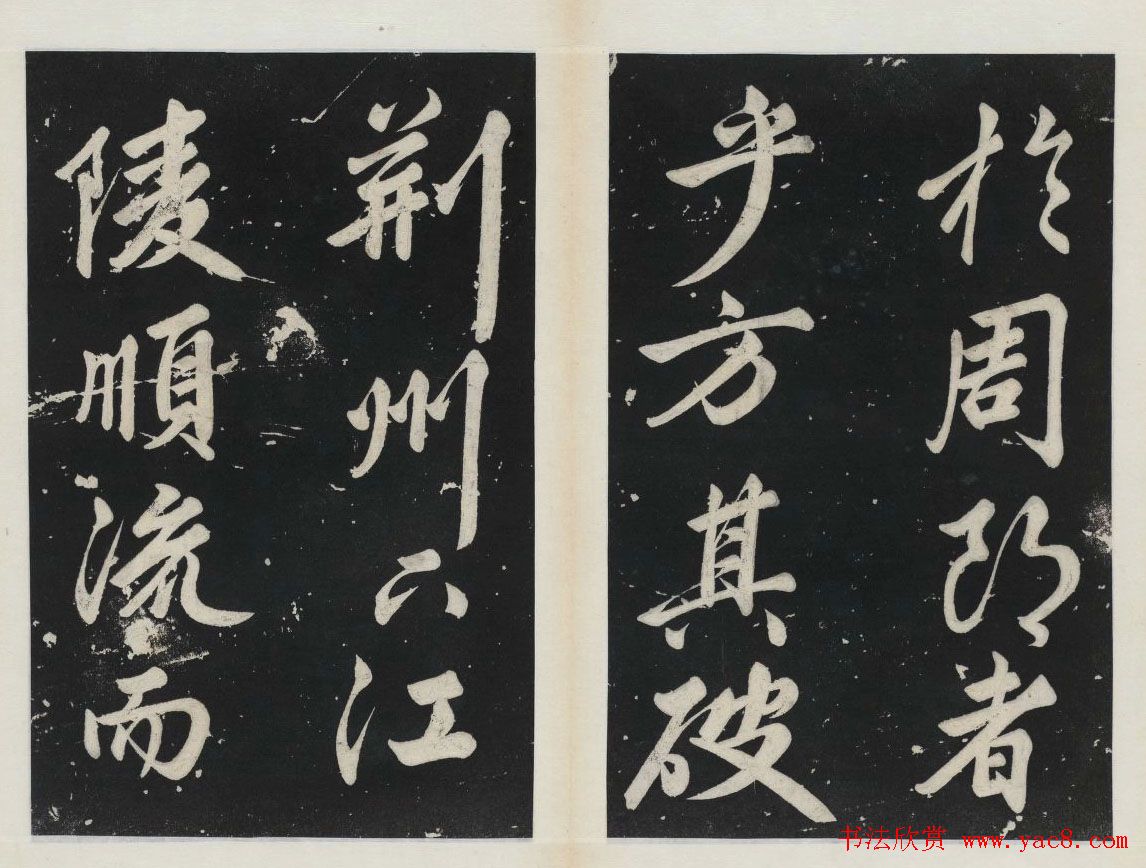 於周郎者
乎方其破
荆州下江
陵順流而
书法欣赏 www.yac8.com